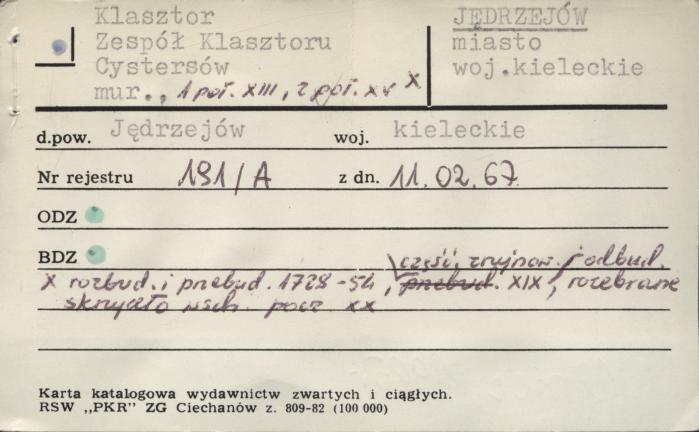 Klasztor
Zespół Klasztoru
Cystersów
mur., 1 poł. XIII, 2 poł. XV X
JĘDRZEJÓW
miasto
woj.kieleckie
d.pow. Jędrzejów woj. kieleckie
Nr rejestru 191/A z dn. 11.02.67
ODZ
BDZ
część. zrujnow. i odbud.
X rozbud. i przebud. 1728-54, przebud. XIX, rozebrane
skrzydło wsch. pocz XX
Karta katalogowa wydawnictw zwartych i ciągłych.
RSW „PKR" ZG Ciechanów z. 809-82 (100 000)